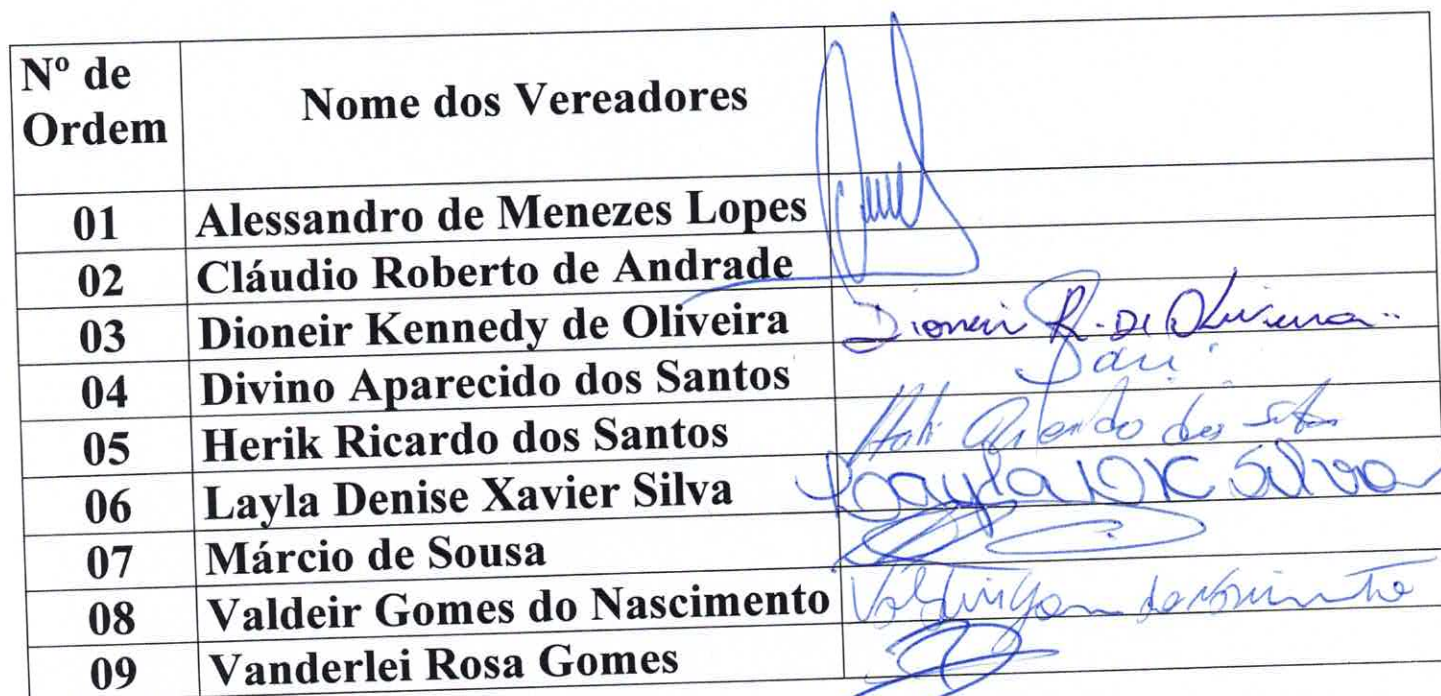 Nº de
Ordem
Nome dos Vereadores
01 Alessandro de Menezes Lopes
02 Cláudio Roberto de Andrade
03 Dioneir Kennedy de Oliveira Dioneir K. De Oliveira
04 Divino Aparecido dos Santos
05 Herik Ricardo dos Santos
06 Layla Denise Xavier Silva Layla DX Silva
07 Márcio de Sousa
08 Valdeir Gomes do Nascimento
09 Vanderlei Rosa Gomes